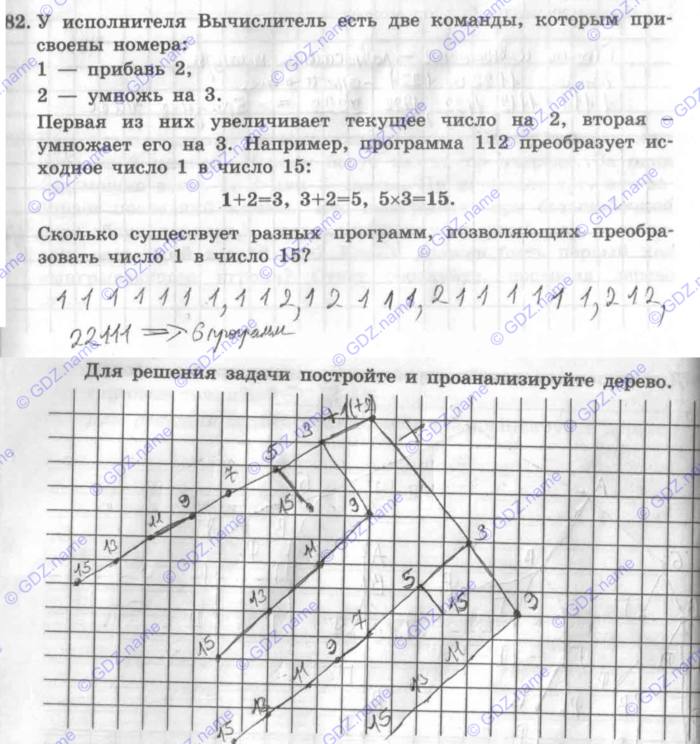 82. У исполнителя Вычислитель есть две команды, которым при-
своены номера:
1 — прибавь 2,
2 — умножь на 3.
Первая из них увеличивает текущее число на 2, вторая –
умножает его на 3. Например, программа 112 преобразует ис-
ходное число 1 в число 15:
1+2=3, 3+2=5, 5×3=15.
Сколько существует разных программ, позволяющих преобра-
зовать число 1 в число 15?
1 1 1 1 1 1 1, 1 1 2, 1 2 1 1 1, 2 1 1 1 1 1 1, 2 1 2,
22111 => 6 программ
Для решения задачи постройте и проанализируйте дерево.
3 +1(+2) ×
5
7 15 9 3
9
11 11 5
13 15 9
15 13 7
15 9 11
11 13
13 15
15
© GDZ.name